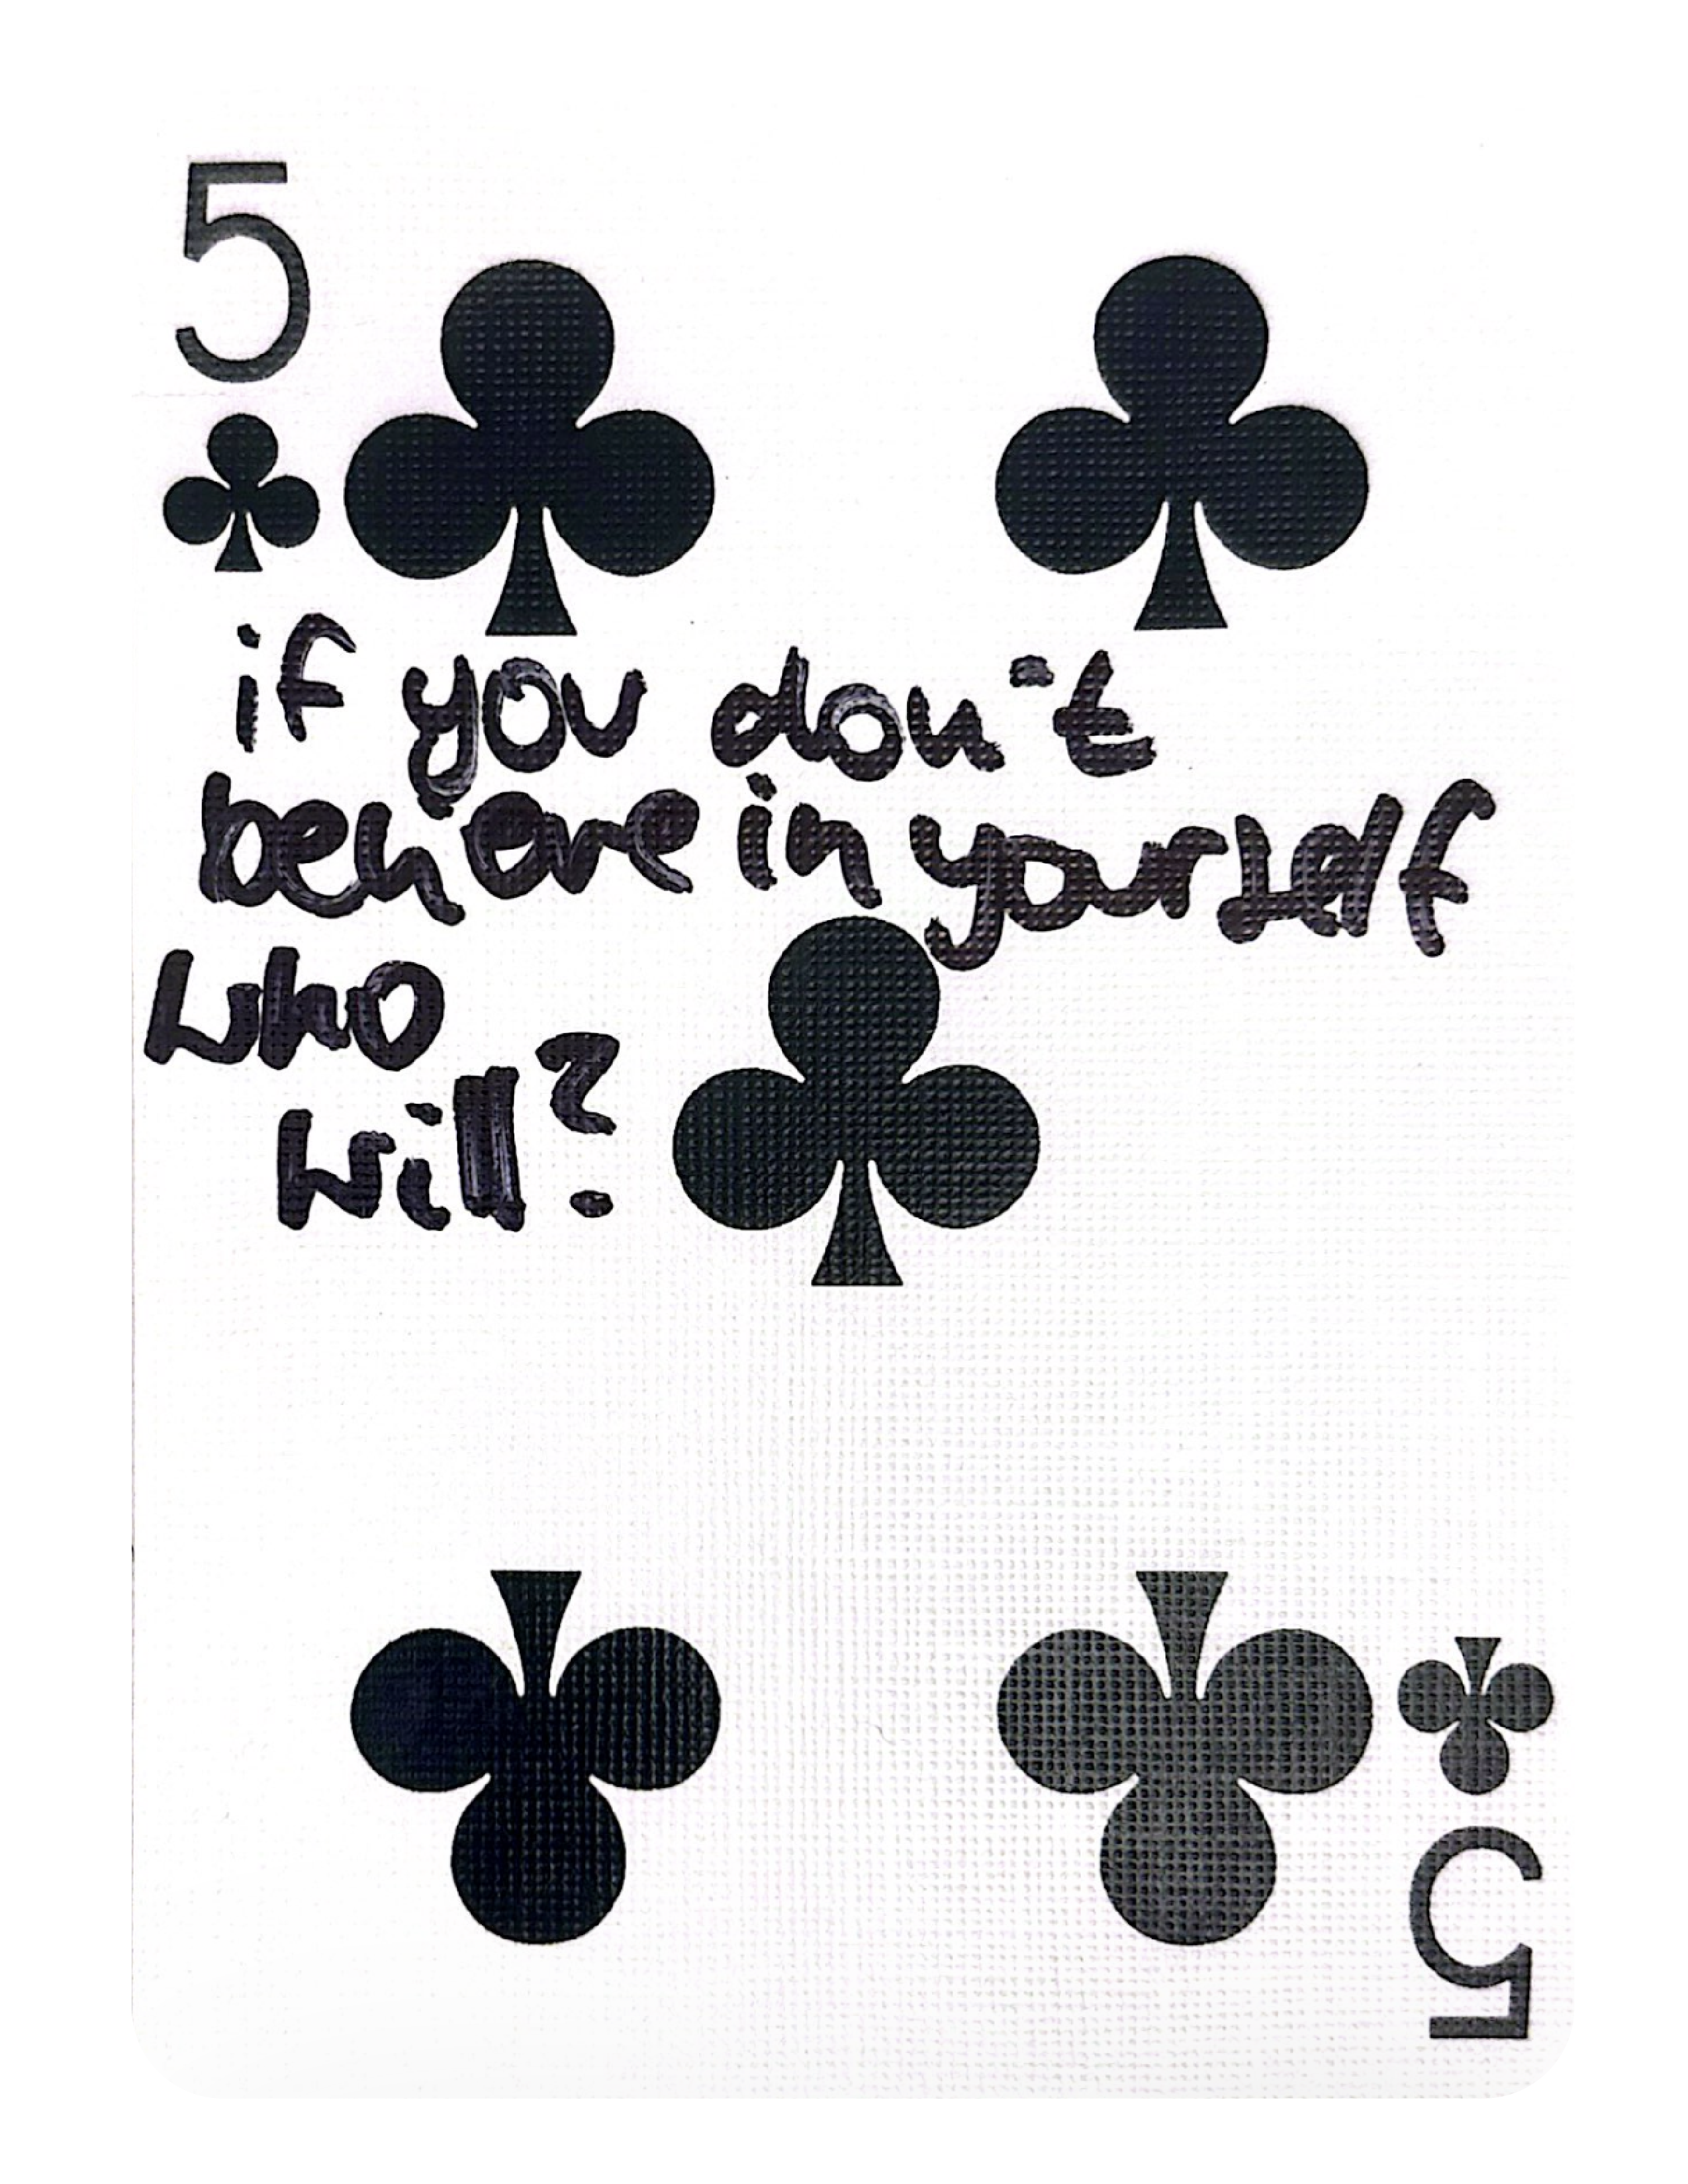 5
if you don't
believe in yourself
who
will?
5